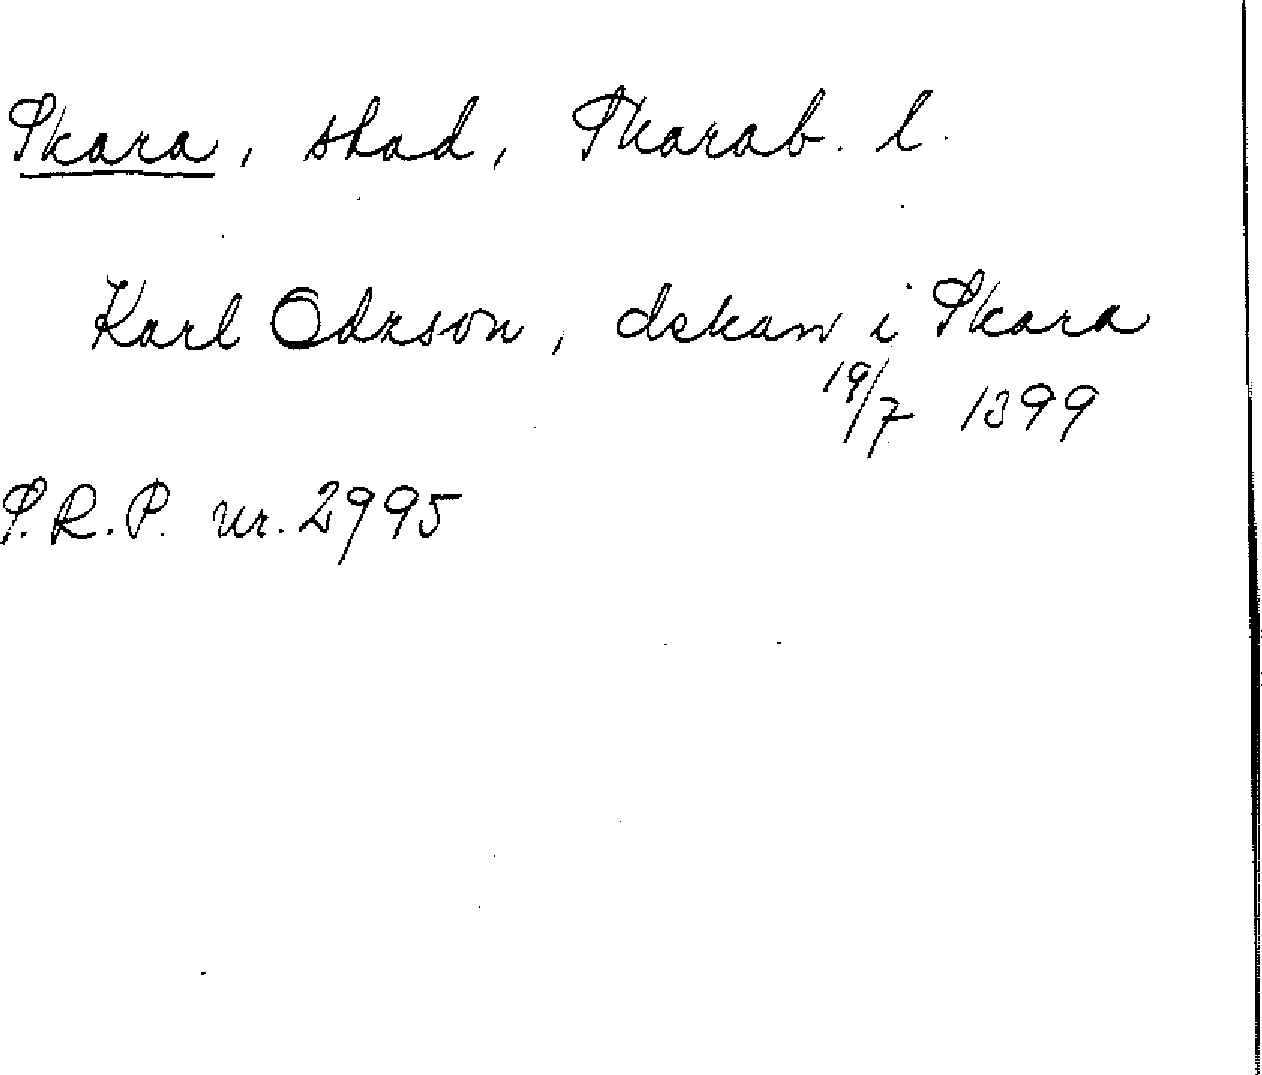 Skara, stad, Skarab. l.
Karl Odzson, dekan i Skara
19/7 1399
S.R.P. nr. 2995